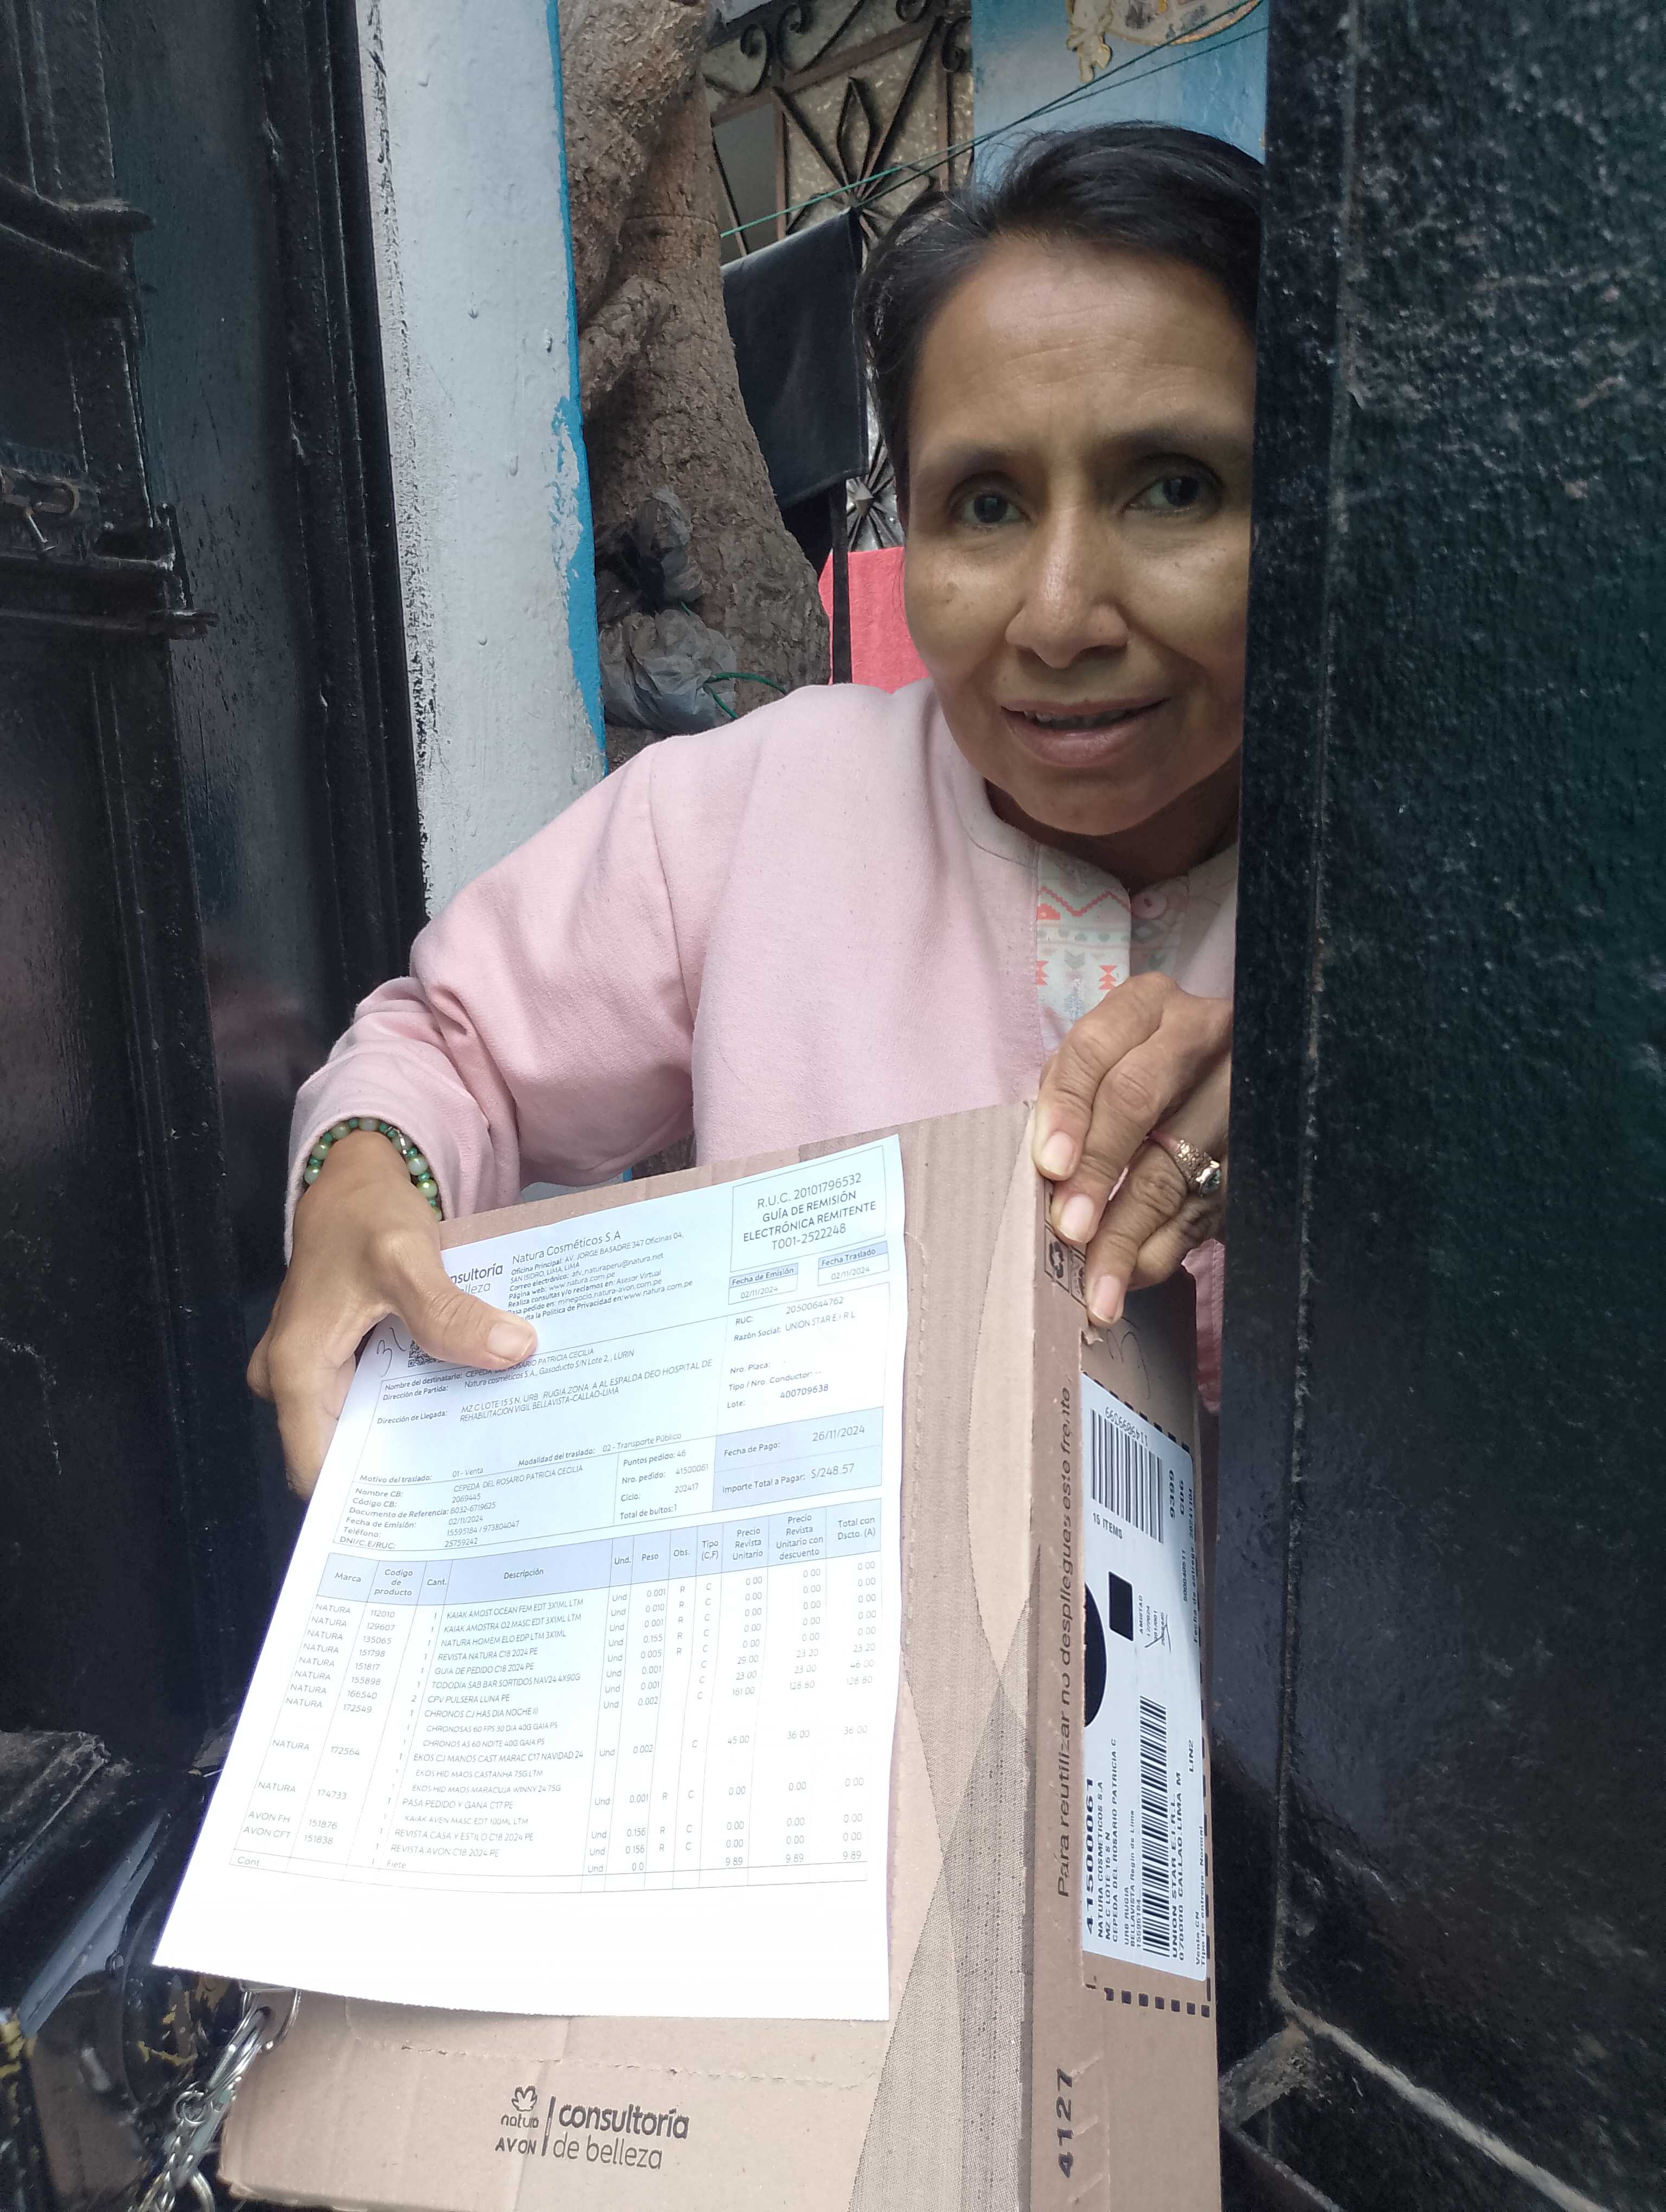 nsultoría
elleza
Natura Cosméticos S.A
Oficina Principal: AV. JORGE BASADRE 347 Oficinas 04,
SAN ISIDRO, LIMA, LIMA
Página web: www.natura.com.pe
Realiza consultas y/o reclamos en: Asesor Virtual
R.U.C. 20101796532
GUÍA DE REMISIÓN
ELECTRÓNICA REMITENTE
T001-2522248
Fecha de Emisión
02/11/2024
Fecha Traslado
02/11/2024
RUC: 20500644762
Razón Social: UNION STAR E.I R L
Nro. Placa:
Tipo / Nro. Conductor:
Lote: 400709638
Nombre del destinatario: CEPEDA DEL ROSARIO PATRICIA CECILIA
Dirección de Partida: Natura cosméticos S.A., Gasoducto S/N Lote 2, , LURIN
Dirección de Llegada: MZ C LOTE 15 S N, URB RUGIA ZONA A AL ESPALDA DEO HOSPITAL DE
REHABILITACION VIGIL BELLAVISTA-CALLAO-LIMA
Motivo del traslado: 01 - Venta
Modalidad del traslado: 02 - Transporte Público
Nombre CB: CEPEDA DEL ROSARIO PATRICIA CECILIA
Código CB: 2069445
Documento de Referencia: B032-6719625
Fecha de Emisión: 02/11/2024
Teléfono: 15595184 / 973804047
DNI/C.E/RUC: 25759242
Puntos pedido: 46
Nro. pedido: 41500061
Ciclo: 202417
Total de bultos: 1
Fecha de Pago: 26/11/2024
Importe Total a Pagar: S/248.57
Marca Codigo de producto Cant. Descripción Und. Peso Obs. Tipo (C,F) Precio Revista Unitario Precio Revista Unitario con descuento Total con Dscto. (A)
NATURA 112010 1 KAIAK AMOST OCEAN FEM EDT 3X1ML LTM Und 0.001 R C 0.00 0.00 0.00
NATURA 129607 1 KAIAK AMOSTRA O2 MASC EDT 3X1ML LTM Und 0.010 R C 0.00 0.00 0.00
NATURA 135065 1 NATURA HOMEM ELO EDP LTM 3X1ML Und 0.001 R C 0.00 0.00 0.00
NATURA 151798 1 REVISTA NATURA C18 2024 PE Und 0.155 R C 0.00 0.00 0.00
NATURA 151817 1 GUIA DE PEDIDO C18 2024 PE Und 0.005 R C 0.00 0.00 0.00
NATURA 155898 1 TODODIA SAB BAR SORTIDOS NAV24 4X90G Und 0.001 C 29.00 23.20 23.20
NATURA 166540 2 CPV PULSERA LUNA PE Und 0.001 C 23.00 23.00 46.00
NATURA 172549 1 CHRONOS CJ HAS DIA NOCHE III Und 0.002 C 161.00 128.80 128.80
1 CHRONOSAS 60 FPS 30 DIA 40G GAIA PS
1 CHRONOS AS 60 NOITE 40G GAIA PS
NATURA 172564 1 EKOS CJ MANOS CAST MARAC C17 NAVIDAD 24 Und 0.002 C 45.00 36.00 36.00
1 EKOS HID MAOS CASTANHA 75G LTM
1 EKOS HID MAOS MARACUJA WINNY 24 75G
NATURA 174733 1 PASA PEDIDO Y GANA C17 PE Und 0.001 R C 0.00 0.00 0.00
1 KAIAK AVEN MASC EDT 100ML LTM
AVON FH 151876 1 REVISTA CASA Y ESTILO C18 2024 PE Und 0.156 R C 0.00 0.00 0.00
AVON CFT 151838 1 REVISTA AVON C18 2024 PE Und 0.156 R C 0.00 0.00 0.00
Cont 1 Flete Und 0.0 9.89 9.89 9.89
natura
AVON
consultoría
de belleza
Para reutilizar no despliegues este frente
4127
15 ITEMS
9399
C06
41500061
NATURA COSMETICOS S.A
MZ C LOTE 15 S N
CEPEDA DEL ROSARIO PATRICIA C
URB RUGIA
BELLAVISTA Region de Lima
15595184
UNION STAR E.I.R.L. M
070000 CALLAO LIMA
LIN2
Tipo de entrega: Normal